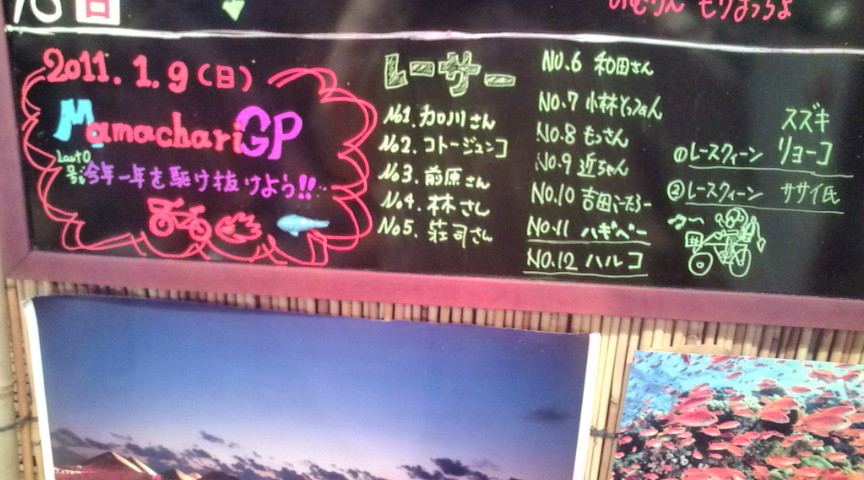 2011.1.9(日)
MamachariGP
今年一年を駆け抜けよう!!
レーサー
No1.加川さん
No2.コトージュンコ
No3.前原さん
No4.林さん
No5.荘司さん
NO.6 和田さん
NO.7 小林とっつぁん
NO.8 もっさん
NO.9 近ちゃん
NO.10 吉田こたろー
NO.11 ハギベー
NO.12 ハルコ
スズキ
①レースクィーン リョーコ
②レースクィーン ササイ氏